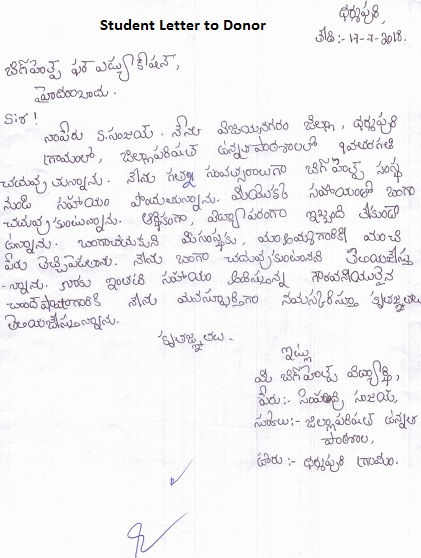 Student Letter to Donor
ధర్మపురి,
తేది :- 17-7-2018.
బిగ్ హెల్ప్ ఫర్ ఎడ్యుకేషన్,
హైదరాబాదు.
Sir!
నాపేరు S. సంజయ్. నేను విజయనగరం జిల్లా, ధర్మపురి
గ్రామంలో, జిల్లాపరిషత్ ఉన్నత పాఠశాలలో తరగతి
చదువుచున్నాను. నేను గత సంవత్సరాలుగా బిగ్ హెల్ప్ సంస్థ
నుండి సహాయం పొందుతున్నాను. మీయొక్క సహాయంతో బాగా
చదువుకుంటున్నాను. ఆర్థికంగా, విద్యాపరంగా ఇబ్బంది లేకుండా
ఉన్నాను. బాగా చదువుకుని మీసంస్థకు, మా మంచి
పేరు తెచ్చిపెడతాను. నేను బాగా చదువుకుంటానని తెలియచేస్తు
-న్నాను. నాకు ఇంతటి సహాయం అందిస్తున్న గౌరవనీయులైన
నేను మనస్ఫూర్తిగా నమస్కరిస్తూ కృతజ్ఞతలు
తెలియచేస్తున్నాను.
కృతజ్ఞతలు.
ఇట్లు
మీ బిగ్ హెల్ప్ విద్యార్థి,
పేరు :- సంజయ్,
స్కూలు :- జిల్లాపరిషత్ ఉన్నత
పాఠశాల,
ఊరు :- ధర్మపురి గ్రామం.